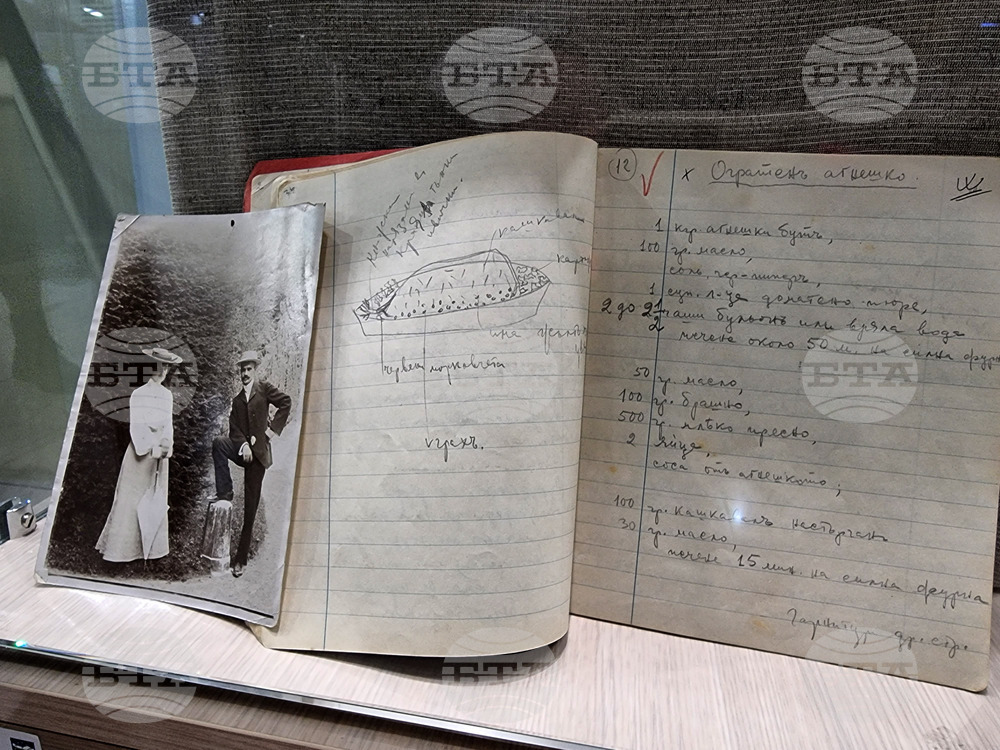 кашкавалъ
червени морковчета
грахъ.
12
x Огратенъ агнешко.
1 кгр. агнешки бутъ,
100 гр. масло,
соль, чер-пиперъ,
1 суп. л-ца доматено пюре,
2 до 2 1/2 чаши бульонъ или вряла вода
печене около 50 м. на силна фурн
50 гр. масло,
100 гр. брашно,
500 гр. млѣко прѣсно,
2 яйца,
соса отъ агнешкото;
100 гр. кашкавалъ настърганъ
30 гр. масло,
печене 15 мин. на силна фурна
Гарнитур др. стр.
БТА
БТА
БТА
БТА
БТА
БТА
БТА
БТА
БТА